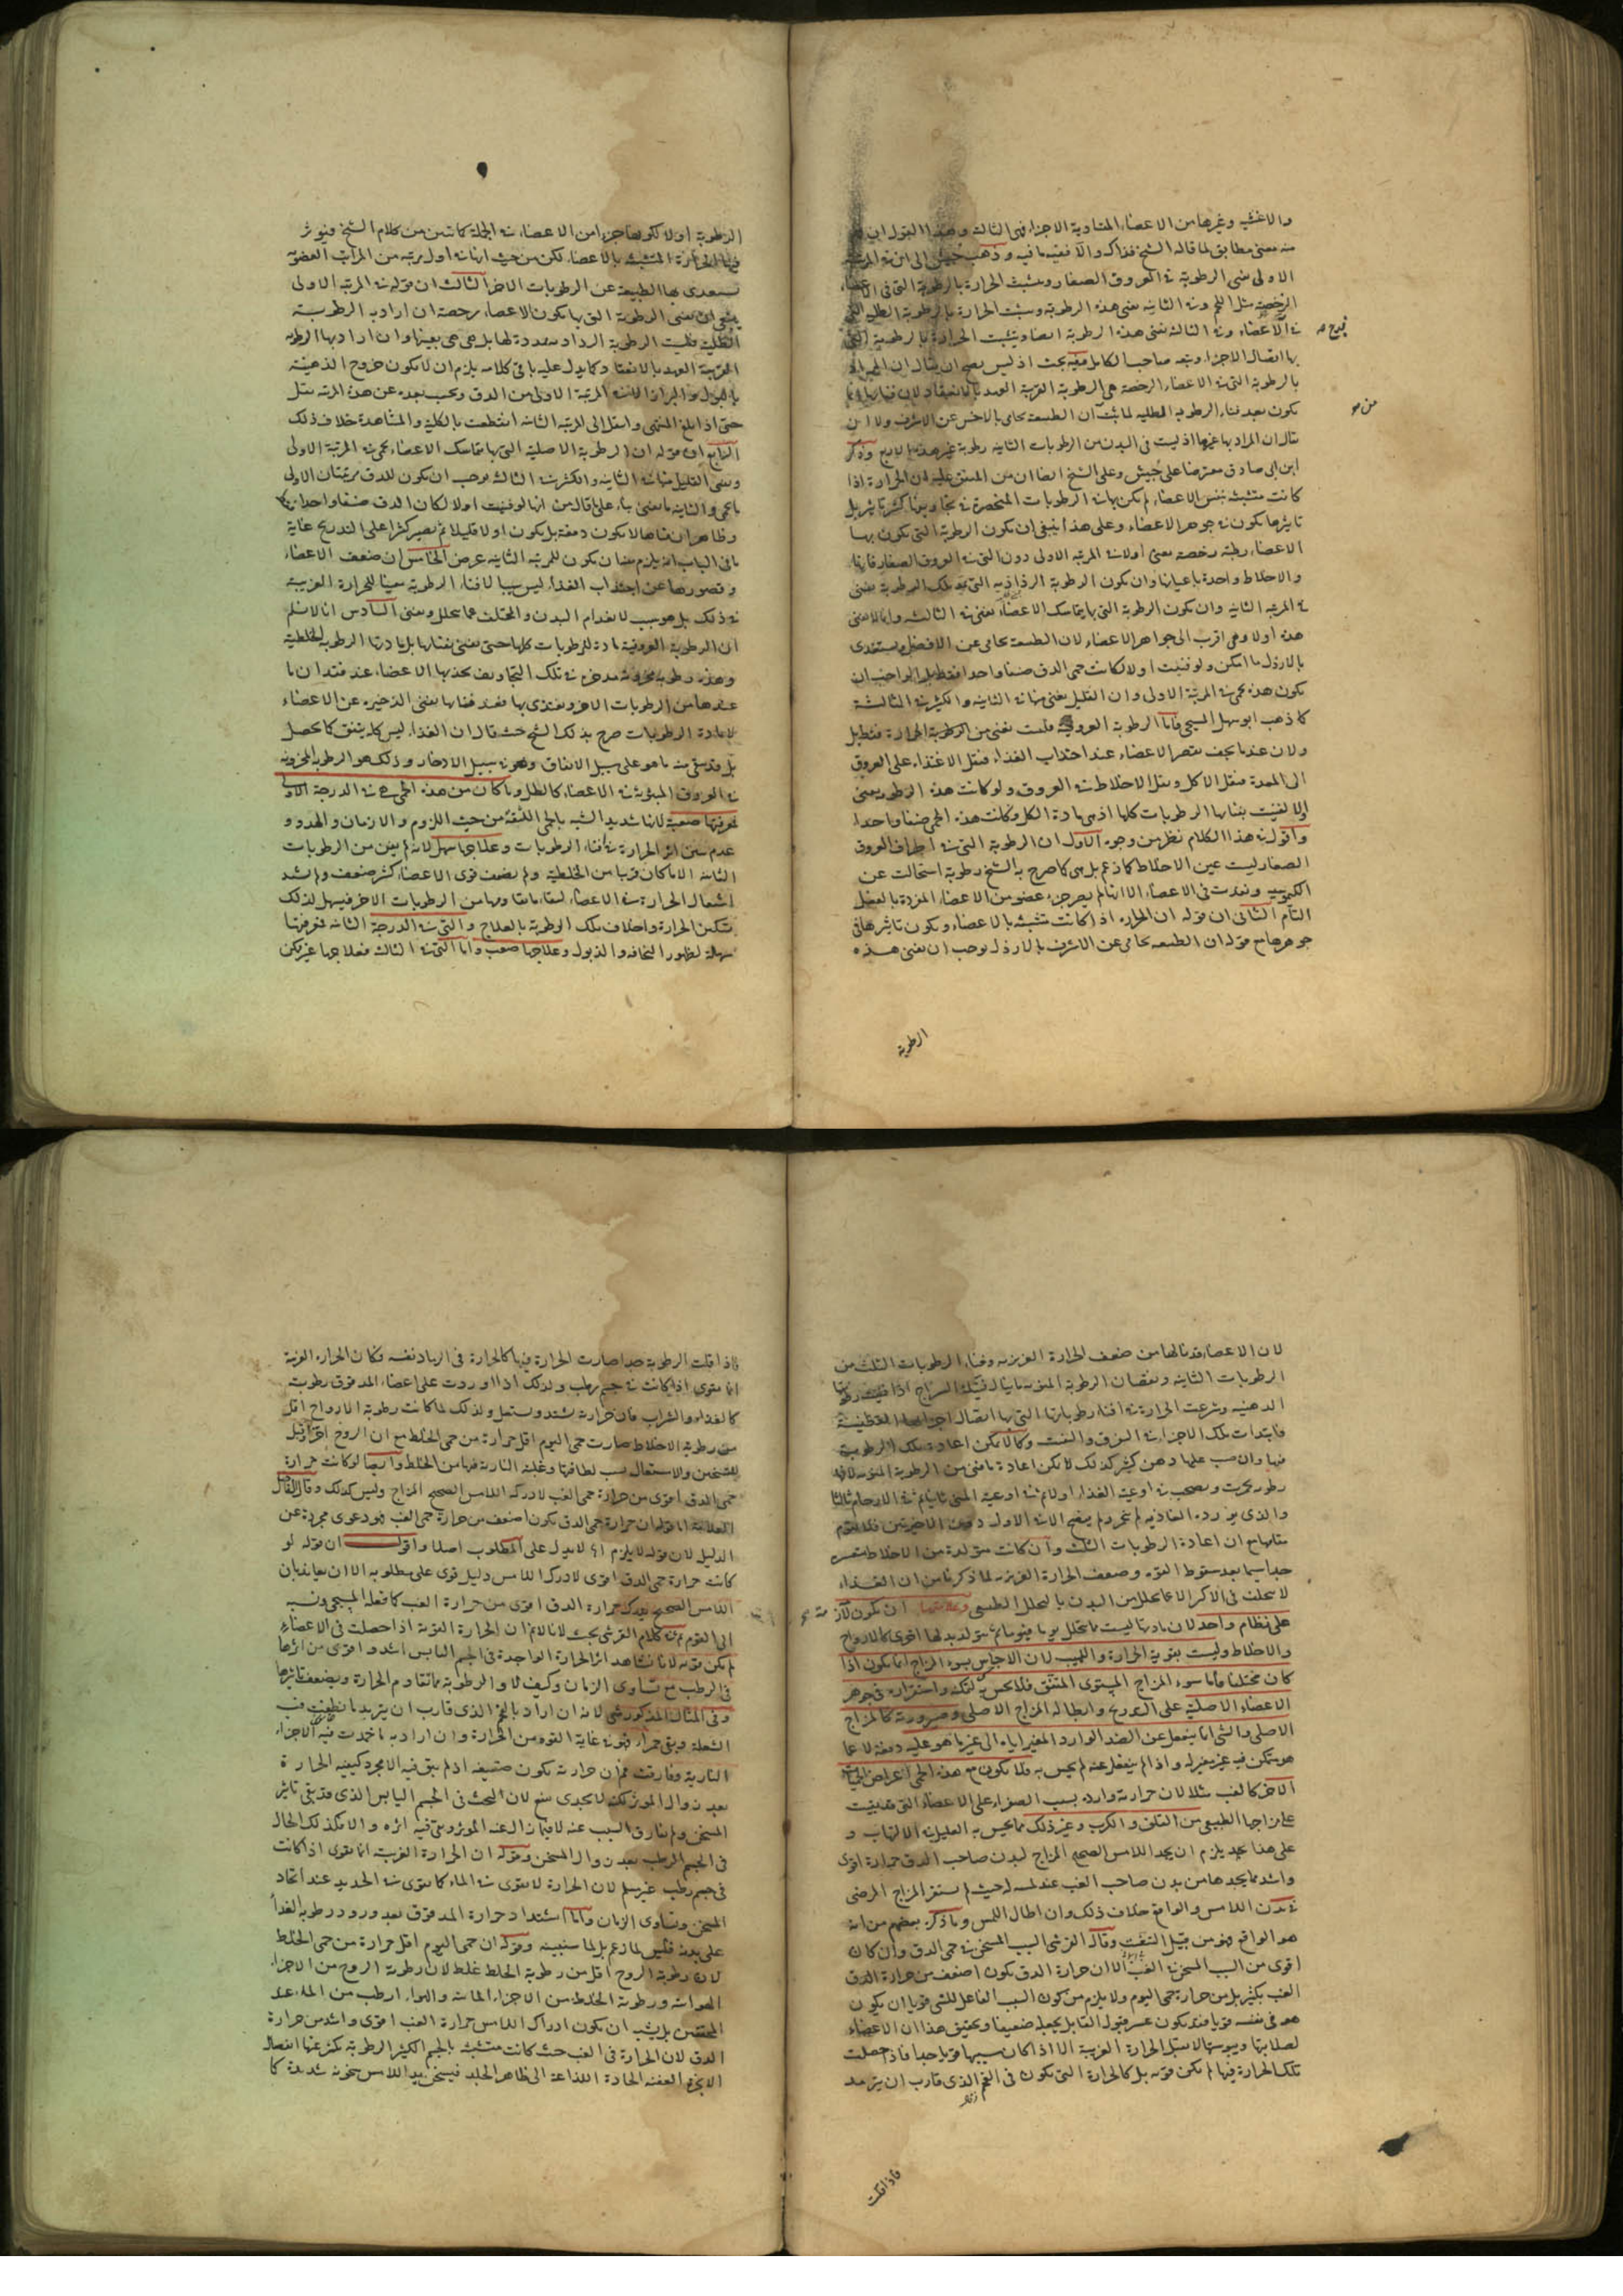 والاغشيه وغيرها من الاعضاء المتشابهة الاجزاء فى الثالثة وهذا القول ان
منه معنى مطابق لما قاله الشيخ فذاك والا ففيه ما فيه وذهب حبيش الى ان فى المرتبة
الاولى تفنى الرطوبة فى العروق الصغار وتشبث الحرارة بالرطوبة التى فى الاعضاء
الرخصة مثل اللحم وفى الثانيه تفنى هذه الرطوبة وتشبث الحرارة بالرطوبة الطلية التى
فى الاعضاء وفى الثالثة تفنى هذه الرطوبة ايضا وتتشبث الحرارة بالرطوبة التى
بها اتصال الاجزاء وتبعه صاحب الكامل وفيه بحث اذ ليس يصح ان يقال ان المراد
بالرطوبة التى فى الاعضاء الرخصة هى الرطوبة القريبة العهد بالانعقاد لان فناءها انما
يكون بعد فناء الرطوبه الطليه لما ثبت ان الطبيعة تحامى بالاخس عن الاشرف ولا ان
يقال ان المراد بها غيرها اذ ليست فى البدن من الرطوبات الثانيه رطوبة غير هذه الاربع وذكر
ابن ابى صادق معترضا على حبيش وعلى الشيخ ايضا ان من المتفق عليه ان الحرارة اذا
كانت متشبثة بنفس الاعضاء لم يكن لها فى الرطوبات المنحصرة فى تجاويفها كثير تاثير بل
تاثيرها يكون فى جوهر الاعضاء وعلى هذا ينبغى ان يكون الرطوبة التى يكون بها
الاعضاء رطبة رخصة تفنى اولا فى المرتبه الاولى دون التى فى العروق الصغار فانها
والاخلاط واحدة باعيانها وان يكون الرطوبة الرذاذيه التى هى تلك الرطوبة تفنى
فى المرتبه الثانيه وان يكون الرطوبة التى بها يتماسك الاعضاء تفنى فى الثالثه وانما لا تفنى
هذه اولا وهى اقرب الى جواهر الاعضاء لان الطبيعة تحامى عن الافضل وتستفدى
بالارذل ما امكن ولو فنيت اولا لكانت حمى الدق صنفا واحدا فقط بل الواجب ان
يكون هذه هى فى المرتبة الاولى وان القليل يفنى منها فى الثانية والكثير فى الثالثة
كما ذهب ابو سهل المسيحى فاما الرطوبة العروقيه فليست تفنى من الرطوبة الحرارة فقط بل
ولان عندما يجف يقصر الاعضاء عند اجتذاب الغذاء فيقل الاغتذاء على العروق
الى المعدة فيقل الاكل ويقل الاخلاط فى العروق ولو كانت هذه الرطوبه تفنى
اولا لفنيت بفنائها الرطوبات كلها اذ هى مادة الكل وكانت هذه الحمى صنفا واحدا
واقول فى هذا الكلام نظر من وجوه الاول ان الرطوبة التى فى اطراف العروق
الصغار ليست عين الاخلاط كما زعم بل هى كما صرح به الشيخ رطوبة استحالت عن
الكيموسيه ونفذت فى الاعضاء الا انها لم يصر جزء عضو من الاعضاء المفردة بالفعل
التام الثانى ان قوله ان الحرارة اذا كانت متشبثة بالاعضاء ويكون تاثيرها فى
جوهرها مع قوله ان الطبيعه تحامى عن الاشرف بالارذل يوجب ان تفنى هذه
الرطوبة
الرطوبة اولا لكونها جزءا من الاعضاء فى الجملة كما تبين من كلام الشيخ ويوثر
فيها الحرارة المتشبثة بالاعضاء لكن من حيث انها فى اول مرتبه من المراتب العضويه
تستفدى بها الطبيعة عن الرطوبات الاخر الثالث ان قوله فى المرتبه الاولى
ينبغى ان تفنى الرطوبة التى بها يكون الاعضاء رخصة ان اراد به الرطوبة
الطلية فليست الرطوبة الرذاذية ممدة لها بل هى هى بعينها وان اراد بها الرطوبه
القريبة العهد بالانعقاد كما يدل عليه باقى كلامه يلزم ان لا يكون خروج الدهنيه
بالبول والبراز الا فى المرتبة الاولى من الدق ويجب بعده عن هذه المرتبه تقل
حتى اذا بلغ المنتهى وانتقل الى المرتبه الثانيه انقطعت بالكليه والمشاهدة خلاف ذلك
الرابع ان قوله ان الرطوبة الاصلية التى بها يتماسك الاعضاء هى فى المرتبة الاولى
ويفنى القليل منها فى الثانية والكثير فى الثالثه يوجب ان يكون للدق مرتبتان الاولى
ما هى والثانيه ما تفنى بناء على ما قال من انها لو فنيت اولا لكان الدق صنفا واحدا
وظاهر ان فناها لا يكون دفعة بل يكون اولا قليلا ثم يصير كثيرا على التدريج غاية
ما فى الباب انه يلزم منه ان يكون للمرتبه الثانيه عرض الخامس ان ضعف الاعضاء
وقصورها عن اجتذاب الغذاء ليس سببا لافناء الرطوبة معينا للحرارة الغريبة
فى ذلك بل هو سبب لانعدام البدن والتخلف عما يتحلل ويفنى السادس انا لا نسلم
ان الرطوبة العروقية مادة للرطوبات كلها حتى تفنى بفنائها بل مادتها الرطوبه الخلطية
وهذه رطوبه مخزونة مدخرة فى تلك التجاويف تجذبها الاعضاء عند فقدان ما
عندها من الرطوبات الاخر وتغتذى بها فعند فنائها تفنى الذخيرة عن الاعضاء
لا مادة الرطوبات صرح بذلك الشيخ حيث قال ان الغذاء ليس كله ينفق كما يحصل
بل قد يبقى منه ما هو على سبيل الانفاق وهو فى سبيل الادخار وذلك هو الرطوبه المخزونه
فى العروق المبثوثة فى الاعضاء كالطل وما كان من هذه الحمى فى الدرجة الاولى
فمعرفتها صعبة لانها شديدة الشبه بالحمى اللثقة من حيث اللزوم والازمان والهدو و
عدم تبين اثر الحرارة فى افناء الرطوبات وعلاجها سهل لانه لم يفن من الرطوبات
الثانيه الا ما كان قريبا من الخلطية ولم يضعف قوى الاعضاء كثير ضعف ولم يشتد
اشتعال الحرارة فى الاعضاء لبقاء ما يقاومها من الرطوبات الاخر فيسهل لذلك
تسكين الحرارة واخلاف تلك الرطوبة بالعلاج والتى فى الدرجة الثانيه فمعرفتها
سهلة لظهور النحافه والذبول وعلاجها صعب واما التى فى الثالثه فعلاجها غير ممكن
لان الاعضاء قد نالها من ضعف الحرارة الغريزيه وفناء الرطوبات الثلث من
الرطوبات الثانيه ونقصان الرطوبة المنويه ما ينال فتيلة السراج اذا فنيت رطوبتها
الدهنيه وشرعت الحرارة فى افناء رطوباتها التى بها اتصال اجزائها القطنية
فابتدات تلك الاجزاء فى التفرق والتفتت وكما لا يمكن اعادة تلك الرطوبة
فيها وان صب عليها دهن كثير كذلك لا يمكن اعادة ما فنى من الرطوبة المنويه لانها
رطوبه تحركت ونضجت فى اوعية الغذاء اولا ثم فى اوعية المنى ثانيا ثم فى الارحام ثالثا
والذى يورده الغاذيه لم يتخمر ولم ينضج الا فى الاول دون الاخيرين فلا يقوم
مقامها مع ان اعادة الرطوبات الثلث وان كانت متولدة من الاخلاط متعسرة
جدا سيما بعد سقوط القوه وضعف الحرارة الغريزيه لما ذكرنا من ان الغذاء
لا يخلف فى الاكثر الا ما يتحلل من البدن بالتحلل الطبيعى وعلامتها ان يكون لازمة
على نظام واحد لان مادتها ليست مما يتحلل يوما فيوما ثم يتولد بدلها اقوى كالارواح
والاخلاط وليست بقوية الحرارة واللهيب لان الاحساس بسوء المزاج انما يكون اذا
كان مختلفا فاما سوء المزاج المستوى المتفق فلا يحس به لتمكنه واستقراره فى جوهر
الاعضاء الاصلية على التدريج وابطاله المزاج الاصلى وصيرورته كالمزاج
الاصلى والشى انما ينفعل عن الضد الوارد المغير اياه الى غير ما هو عليه دفعة لا عما
هو متمكن فيه غير مغير له واذا لم ينفعل عنه لم يحس به فلا يكون مع هذه الحمى اعراض الحميات
الاخر كالغب مثلا لان حرارته واردة بسبب الصفراء على الاعضاء التى قد بقيت
على مزاجها الطبيعى من القلق والكرب وغير ذلك مما يحس به العليل فى الالتهاب و
على هذا يجب يلزم ان يجد اللامس الصحيح المزاج لبدن صاحب الدق حرارة اقوى
واشد مما يجدها من بدن صاحب الغب عند لمسه له حيث لم يستقر المزاج المرضى
فى بدن اللامس والواقع خلاف ذلك وان اطال اللمس وما ذكره بعضهم من انه
هو الواقع فهو من قبيل التعنت وقال القرشى السبب المسخن فى حمى الدق وان كان
اقوى من السبب المسخن فى الغب الا ان حرارة الدق يكون اضعف من حرارة الدق
الغب بكثير بل من حرارة حمى اليوم ولا يلزم من كون السبب الفاعل للشى قويا ان يكون
هو فى نفسه قويا فقد يكون عسر قبول القابل يجعله ضعيفا وتحقيق هذا ان الاعضاء
لصلابتها ويبوستها لا تقبل الحرارة الغريبة الا اذا كان سببها قويا جدا فاذا حصلت
تلك الحرارة فيها لم يكن قويه بل كالحرارة التى يكون فى الفحم الذى قارب ان يترمد
فاذا قلت
فاذا قلت الرطوبة جدا صارت الحرارة فيها كالحرارة فى الرماد نفسه فكان الحرارة الغريبة
انما تقوى اذا كانت فى جسم رطب ولذلك اذا وردت على اعضاء المدقوق رطوبة
كالغذاء والشراب فان حرارته تشتد وتشتعل ولذلك لما كانت رطوبة الارواح اقل
من رطوبة الاخلاط صارت حمى اليوم اقل حرارة من حمى الخلط مع ان الروح اقبل
للتسخن والاشتعال بسبب لطافتها وغلبة النارية فيها من الخلط وايضا لو كانت حرارة
حمى الدق اقوى من حرارة حمى الغب لادركه اللامس الصحيح المزاج وليس كذلك وقال الفاضل
العلامة اما قوله ان حرارة حمى الدق يكون اضعف من حرارة حمى الغب فهو دعوى مجردة عن
الدليل لان قوله لا يلزم اه لا يدل على المطلوب اصلا واقول ان قوله لو
كانت حرارة حمى الدق اقوى لادركه اللامس دليل قوى على مطلوبه الا ان يعاند بان
اللامس الصحيح يدرك حرارة الدق اقوى من حرارة الغب كما فعله المسيحى ونسبه
الى القوم نعم فى كلام القرشى بحث لانا لا نم ان الحرارة القوية اذا حصلت فى الاعضاء
لم يكن قويه لانا نشاهد اثر الحرارة الواحدة فى الجسم اليابس اشد واقوى من اثرها
فى الرطب مع تساوى الزمان وكيف لا والرطوبة مما تقاوم الحرارة ويضعف تاثيرها
وفى المثال المذكور شى لانه ان اراد بالفحم الذى قارب ان يترمد ما انطفت فيه
الشعلة وبقى جمرا فهو فى غاية القوه من الحرارة وان اراد به ما خمدت فيه الاجزاء
النارية وفارقت فمع ان حرارته يكون ضعيفة اذ لم يبق فيه الا مجرد كيفية الحرارة
بعد زوال الموثر لكنه لا يجدى نفعا لان البحث فى الجسم اليابس الذى قد بقى تاثير
المسخن ولم يفارق السبب عنه لا فيما زال عنه الموثر وبقى فيه اثره والا فكذلك الحال
فى الجسم الرطب بعد زوال المسخن وقوله ان الحرارة الغريبة انما تقوى اذا كانت
فى جسم رطب غير مسلم لان الحرارة لا تقوى فى الماء كما تقوى فى الحديد عند اتحاد
المسخن وتساوى الزمان واما اشتداد حرارة المدقوق بعد ورود رطوبة الغذاء
على بدنه فليس لما زعم بل لما سنبينه وقوله ان حمى اليوم اقل حرارة من حمى الخلط
لان رطوبة الروح اقل من رطوبة الخلط غلط لان رطوبة الروح من الاجزاء
الهوائية ورطوبة الخلط من الاجزاء المائية والهواء ارطب من الماء عند
المحققين بل يشبه ان يكون ادراك اللامس حرارة الغب اقوى واشد من حرارة
الدق لان الحرارة فى الغب حيث كانت متشبثة بالجسم الكثير الرطوبة يكثر عنها انفصال
الابخرة العفنه الحادة اللذاعة الى ظاهر الجلد فيسخن يد اللامس سخونة شديدة كما